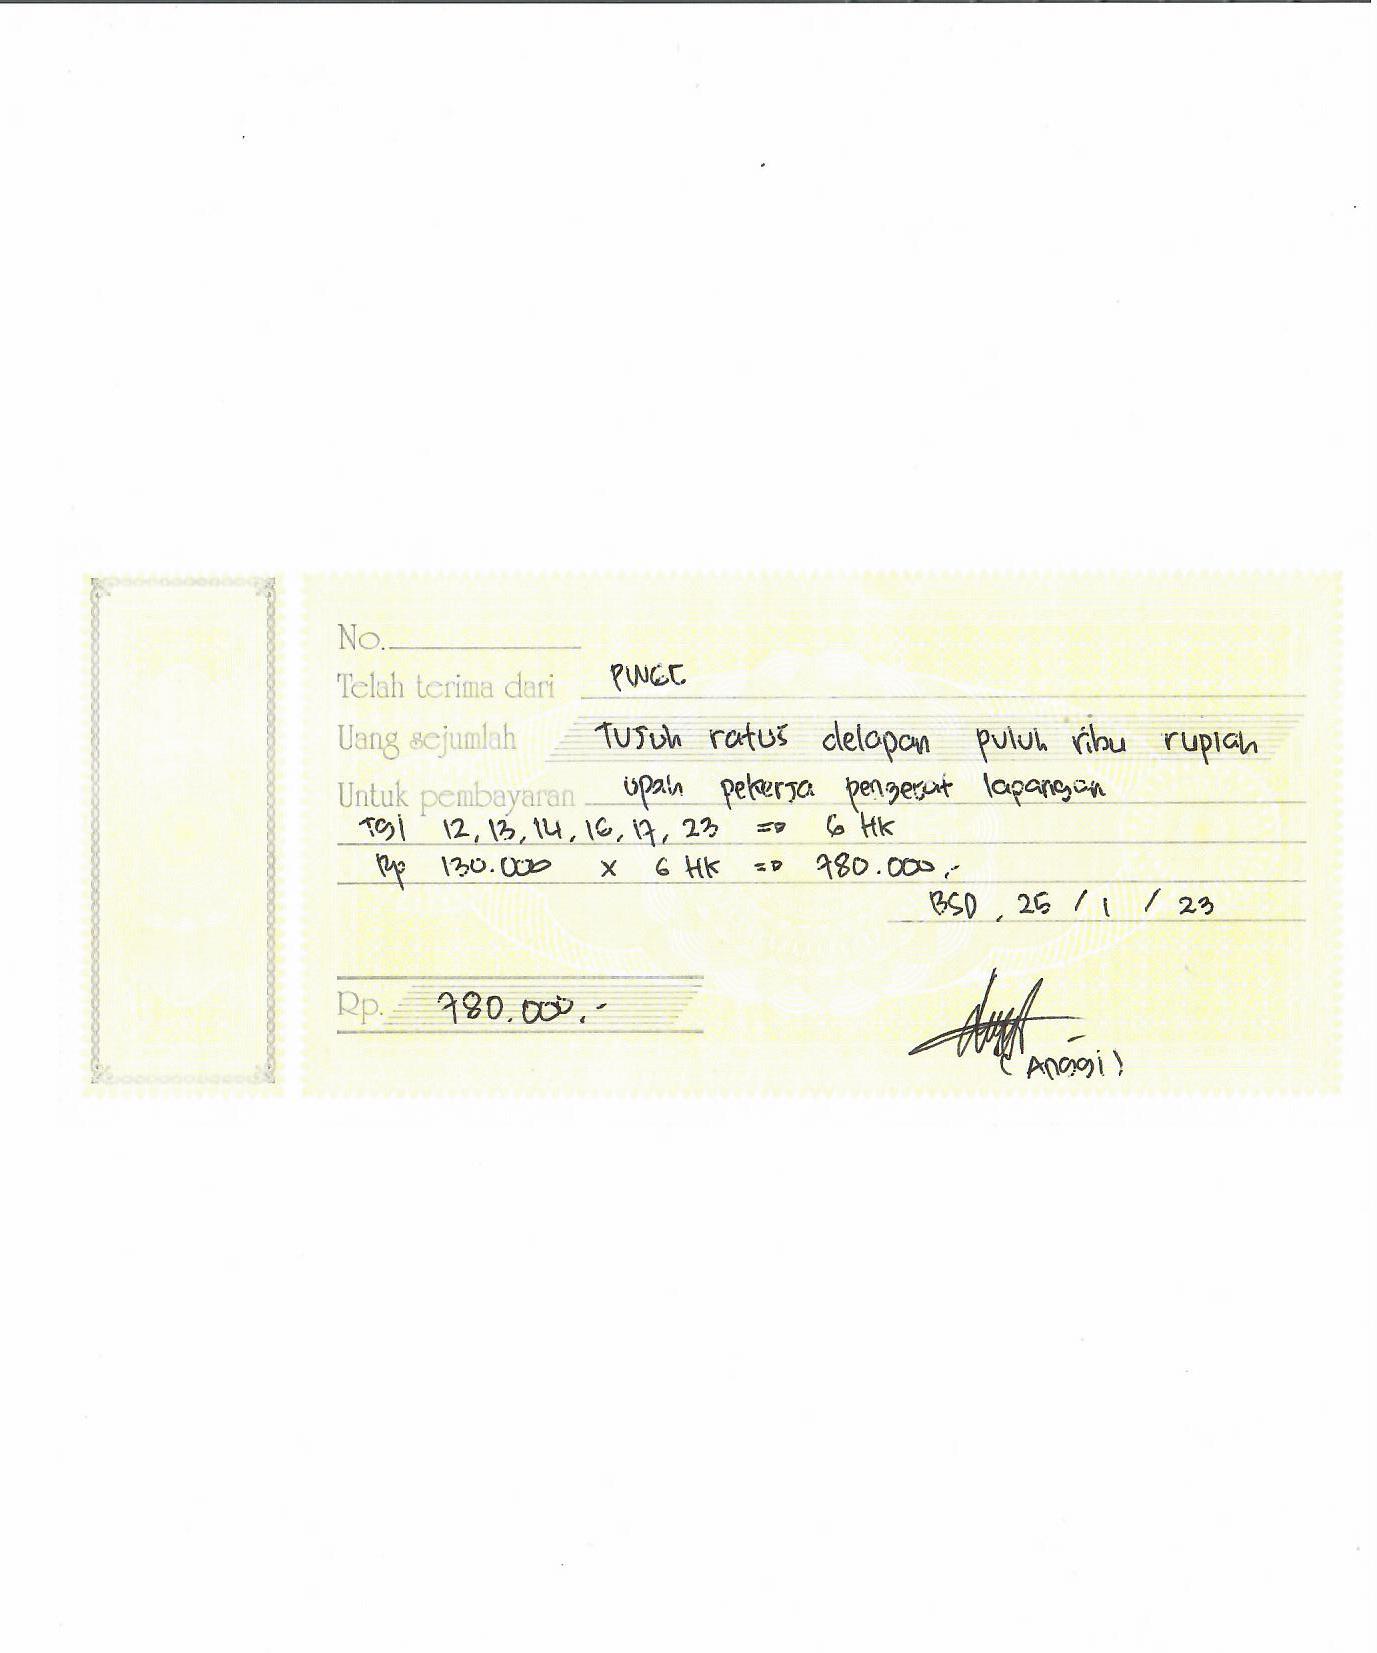 No.
Telah terima dari PWGC
Uang sejumlah Tujuh ratus delapan puluh ribu rupiah
Untuk pembayaran upah pekerja pengerat lapangan
Tgl 12, 13, 14, 16, 17, 23 => 6 HK
Rp 130.000 x 6 HK => 780.000,-
BSD, 25 / 1 / 23
Rp. 780.000,-
(Anggi)